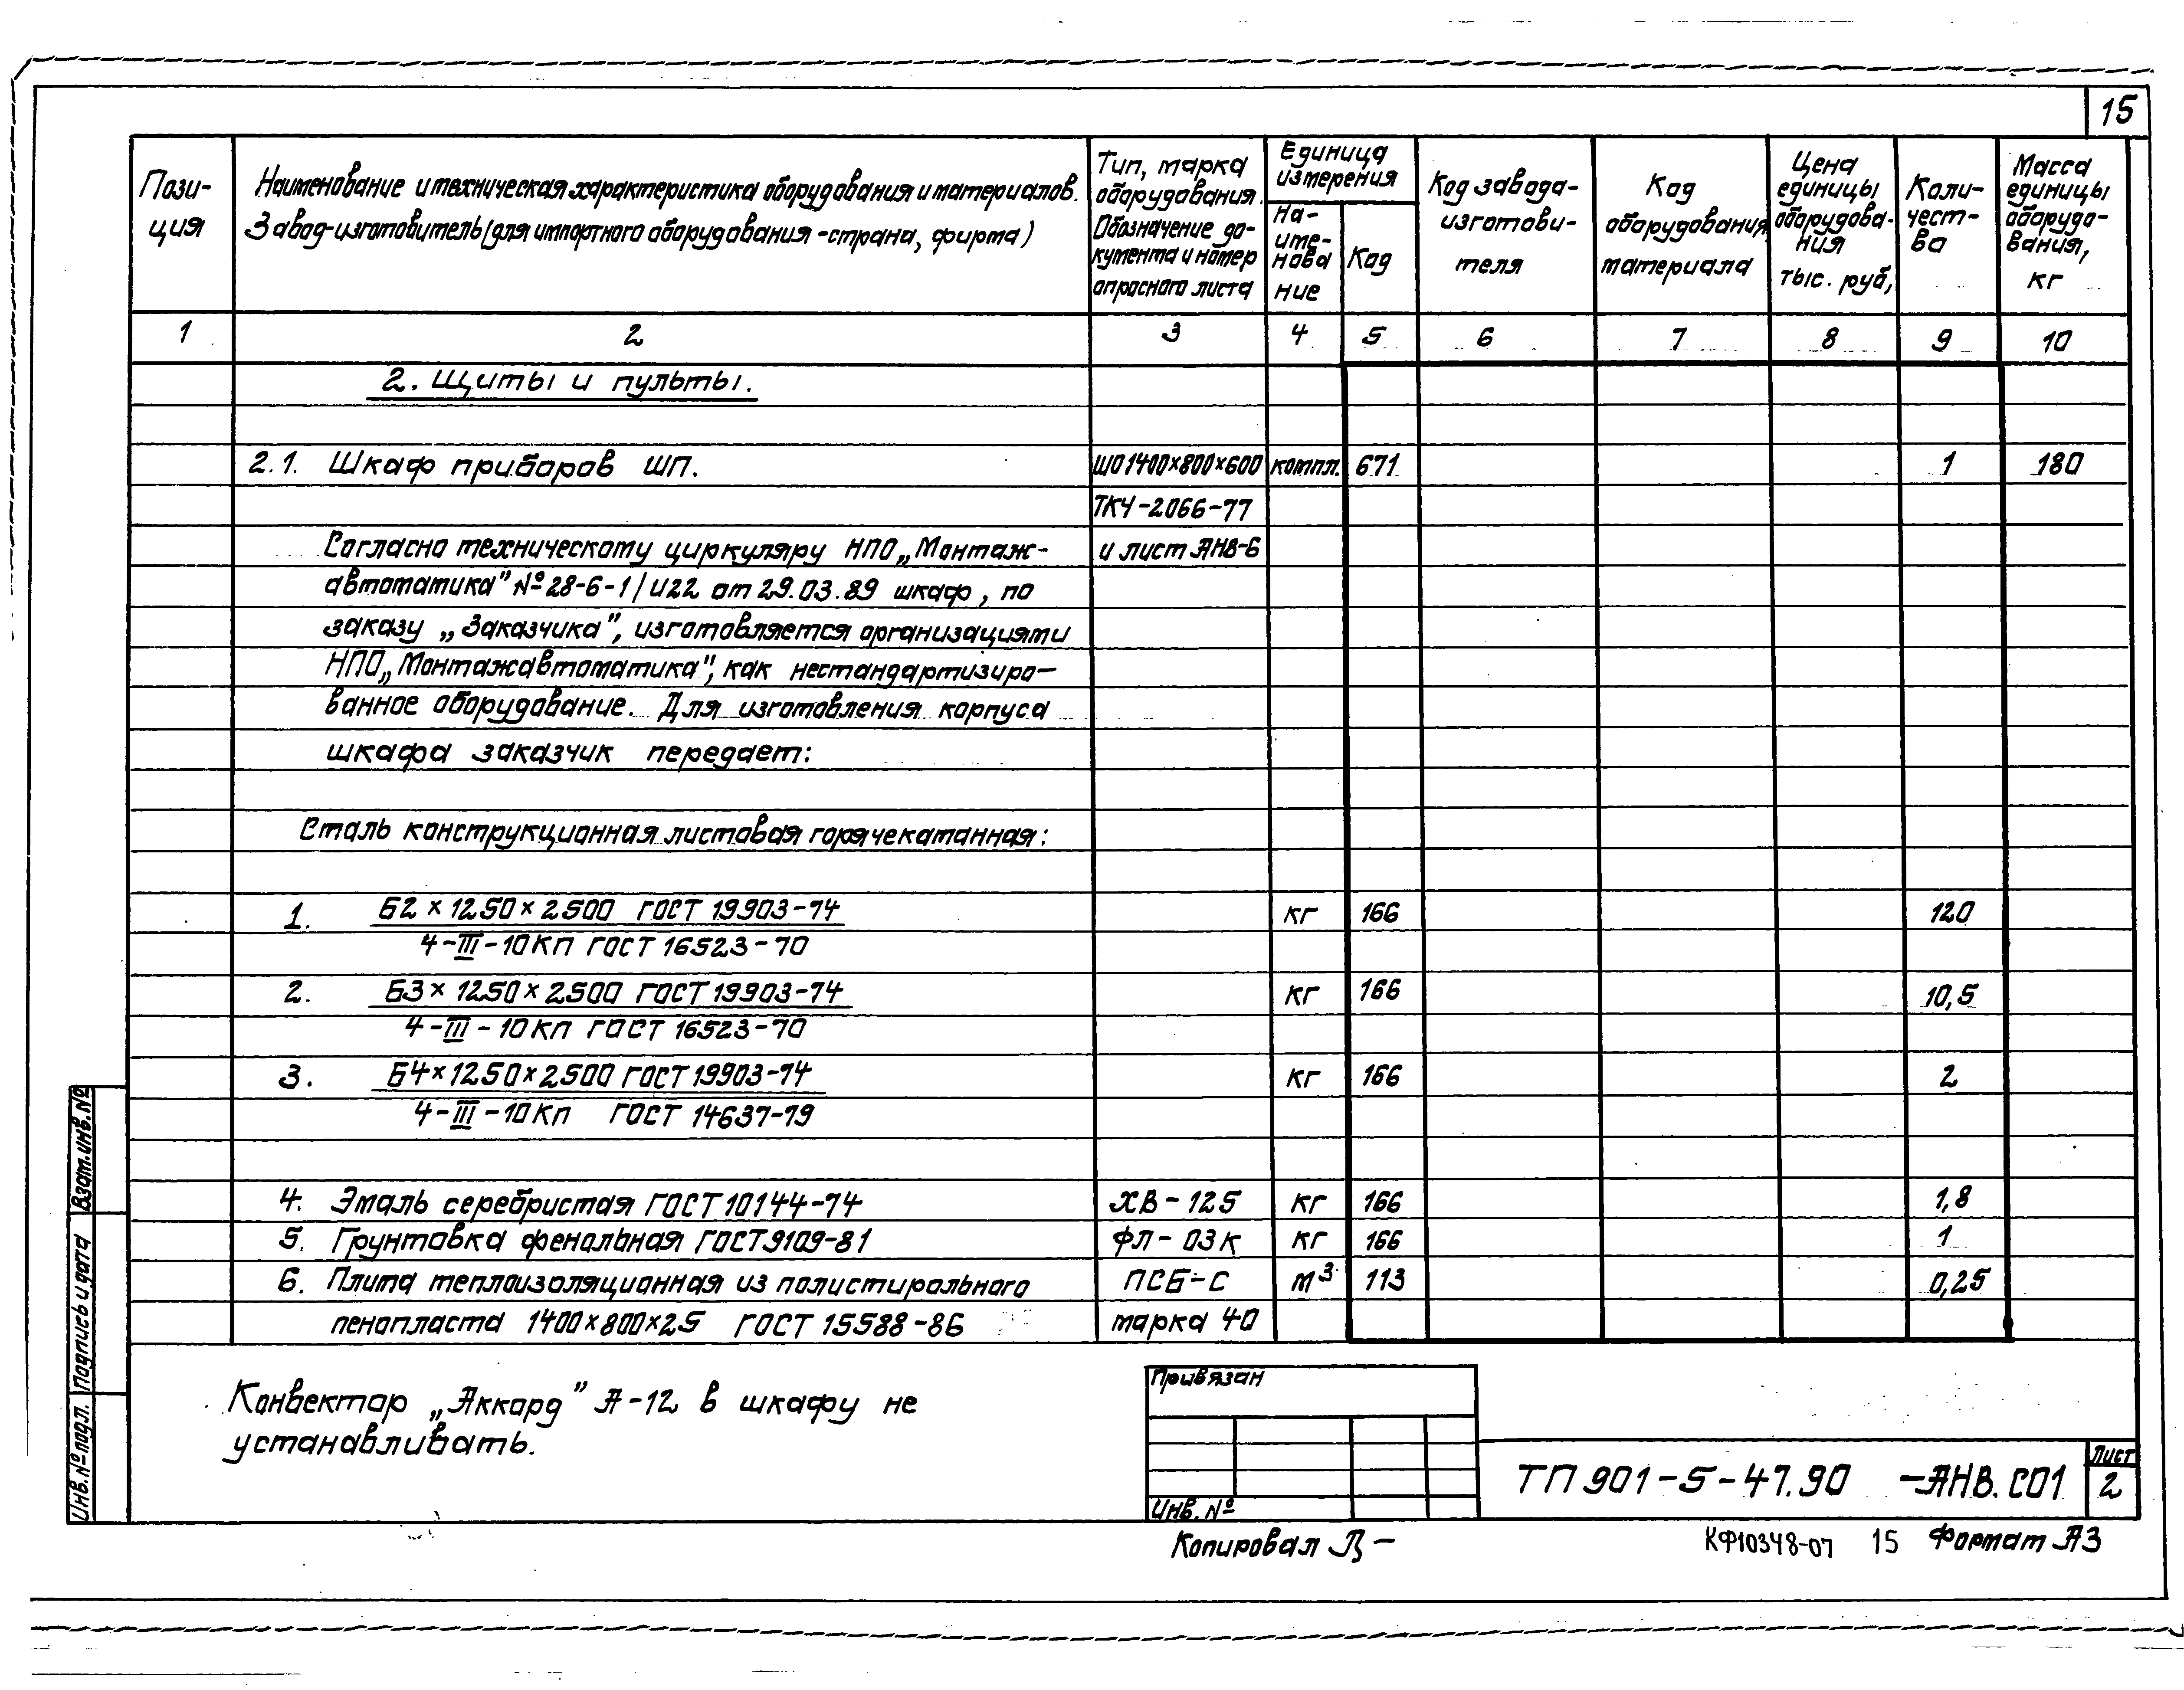 15
Пози-
ция
Наименование и техническая характеристика оборудования и материалов.
Завод-изготовитель (для импортного оборудования - страна, фирма)
Тип, марка
оборудования.
Обозначение до-
кумента и номер
опросного листа
Единица
измерения
На-
име-
нова
ние
Код
Код завода-
изготови-
теля
Код
оборудования,
материала
Цена
единицы
оборудова-
ния
тыс. руб,
Коли-
чест-
во
Масса
единицы
оборудо-
вания,
кг
1 2 3 4 5 6 7 8 9 10
2. Щиты и пульты.
2.1. Шкаф приборов ШП. ШО1400×800×600 компл. 671 1 180
ТКЧ-2066-77
Согласно техническому циркуляру НПО „Монтаж- и лист АНВ-6
автоматика" №28-6-1/И22 от 29.03.89 шкаф, по
заказу „Заказчика", изготовляется организациями
НПО „Монтажавтоматика", как нестандартизиро-
ванное оборудование. Для изготовления корпуса
шкафа заказчик передает:
Сталь конструкционная листовая горячекатанная:
1. Б2 × 1250 × 2500 ГОСТ 19903-74 кг 166 120
4-III-10КП ГОСТ 16523-70
2. Б3 × 1250 × 2500 ГОСТ 19903-74 кг 166 10,5
4-III-10КП ГОСТ 16523-70
3. Б4×1250×2500 ГОСТ 19903-74 кг 166 2
4-III-10КП ГОСТ 14637-79
4. Эмаль серебристая ГОСТ 10144-74 ХВ-125 кг 166 1,8
5. Грунтовка фенольная ГОСТ 9109-81 ФЛ-03К кг 166 1
6. Плита теплоизоляционная из полистирольного ПСБ-С м³ 113 0,25
пенопласта 1400×800×25 ГОСТ 15588-86 марка 40
Конвектор „Аккорд" А-12 в шкафу не
устанавливать.
Привязан
Инв. №
ТП 901-5-47.90 -АНВ.СО1
Лист
2
Взам. инв. №
Подпись и дата
Инв. № подл.
Копировал
КФ10348-07 15 Формат А3